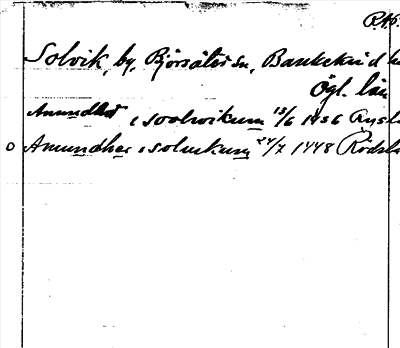 Solvik, by, Björsäter sn, Bankekind h
Ögl. län
Amundhæ i soolwikum 13/6 1436
o Amundhæ i soluikum 24/7 1448